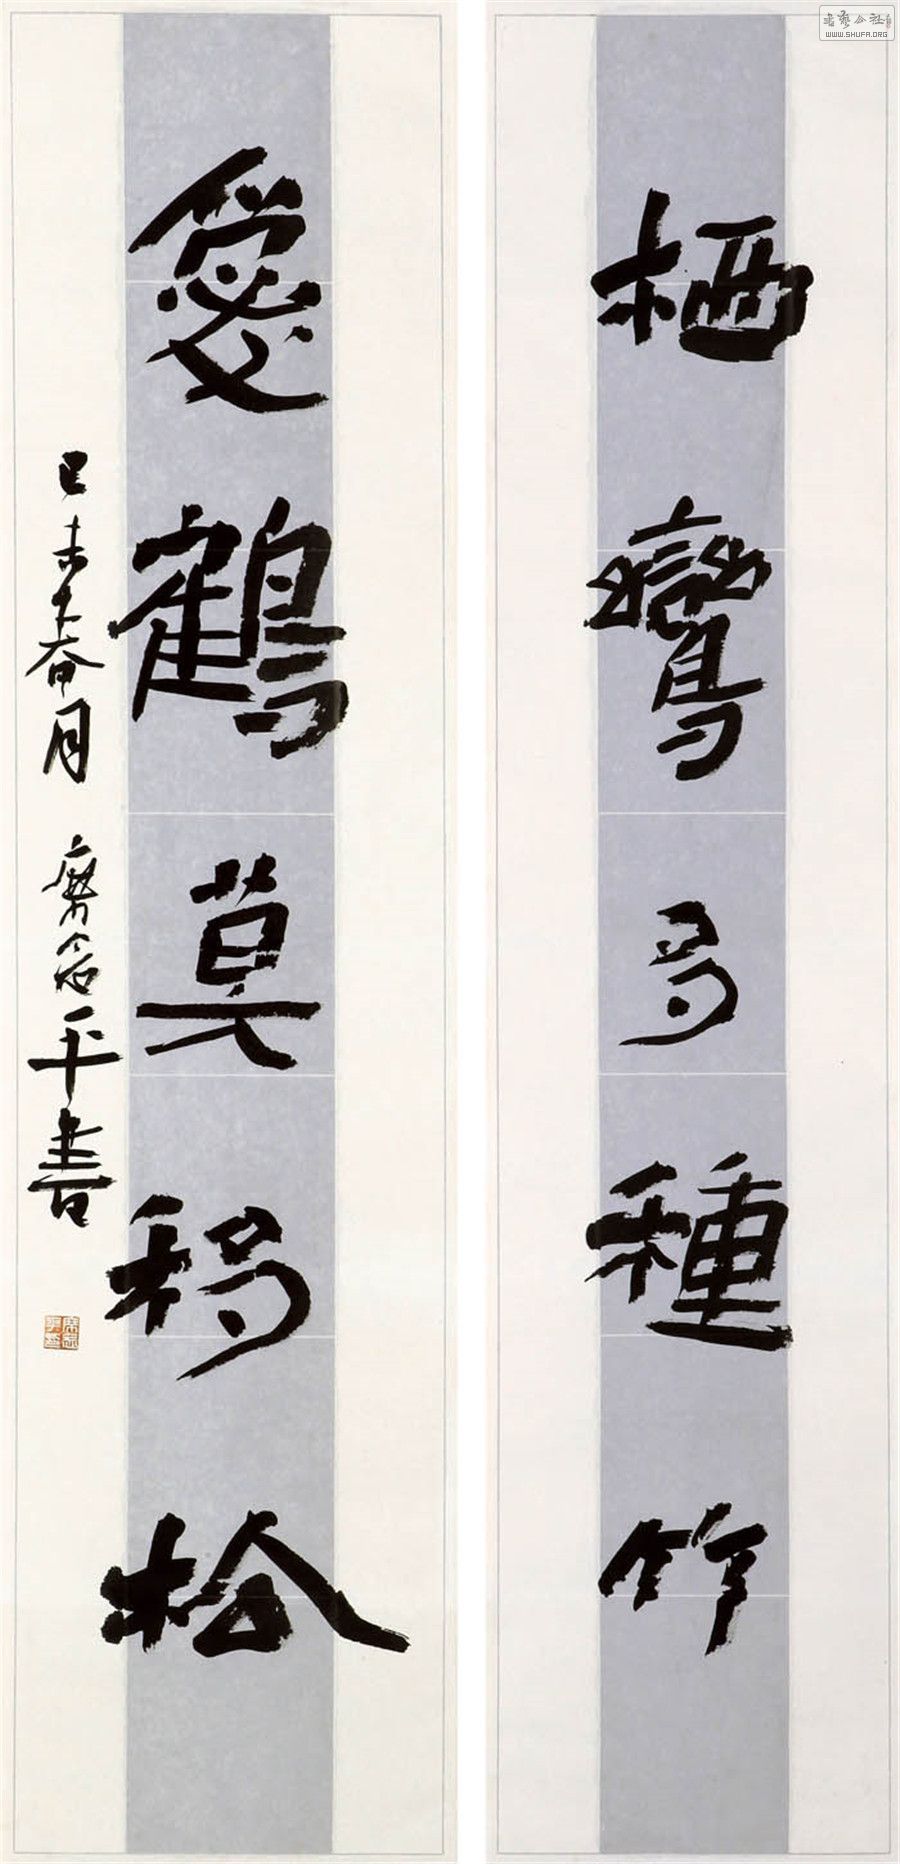 栖鸞多種竹
愛鶴莫移松
己未春月 齊念平書
書藝公社
WWW.SHUFA.ORG